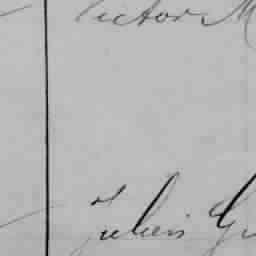 Victor M
Julien Gu